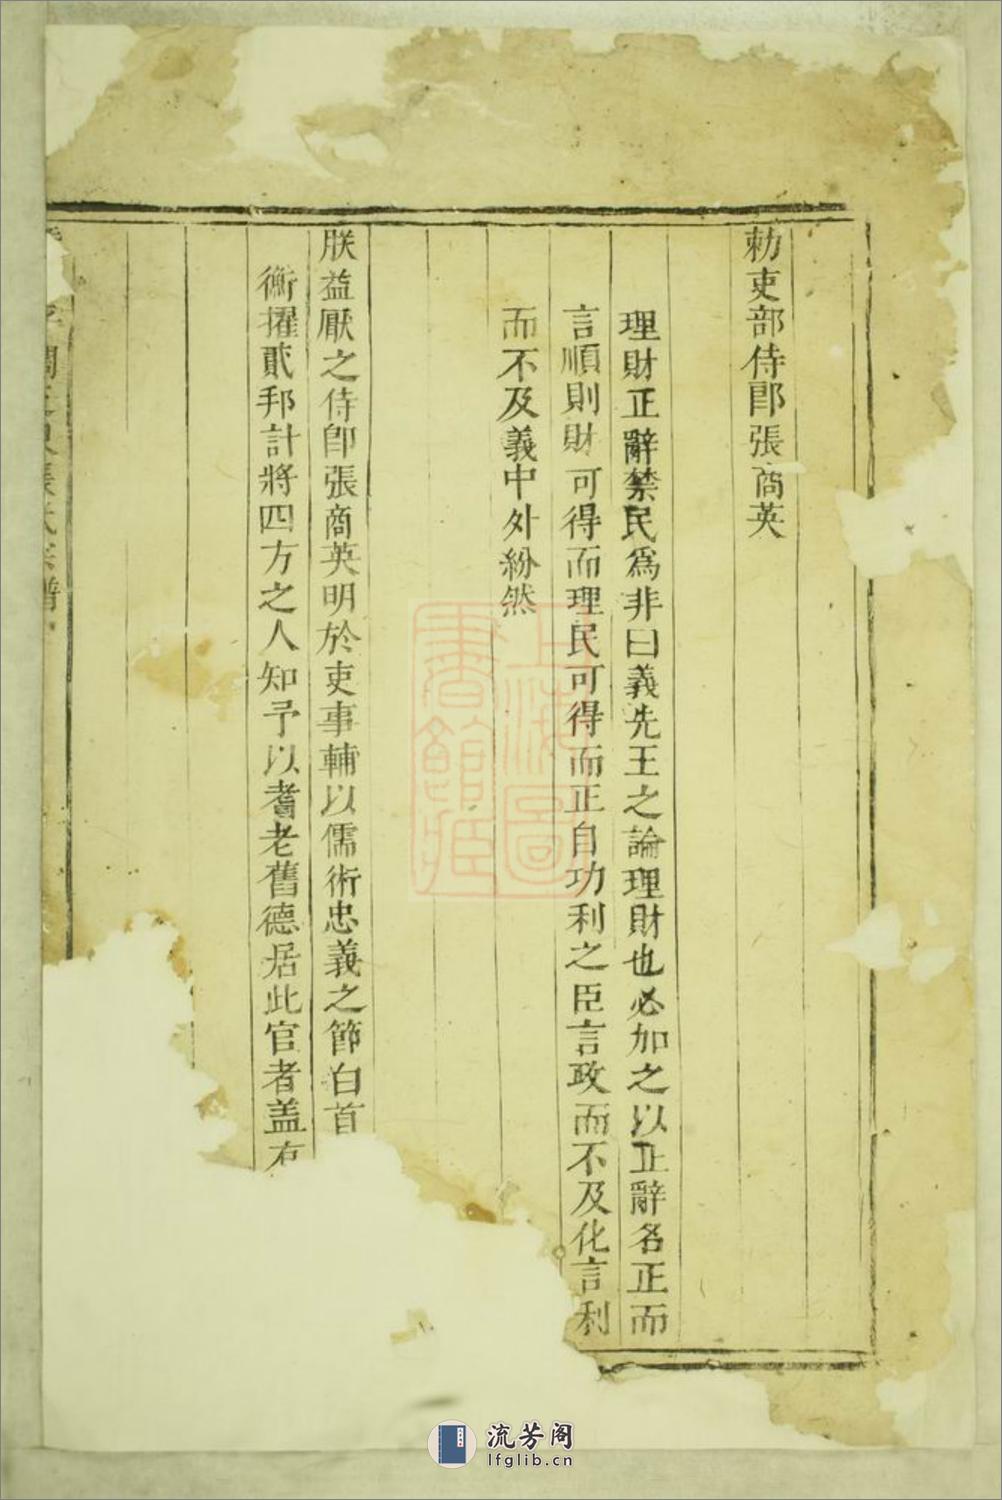 勑吏部侍郎張商英
理財正辭禁民為非曰義先王之論理財也必加之以正辭名正而
言順則財可得而理民可得而正自功利之臣言政而不及化言利
而不及義中外紛然
朕益厭之侍郎張商英明於吏事輔以儒術忠義之節白首
衡擢貳邦計將四方之人知予以耆老舊德居此官者盖有
張氏宗譜
上海圖書館藏
流芳阁
lfglib.cn